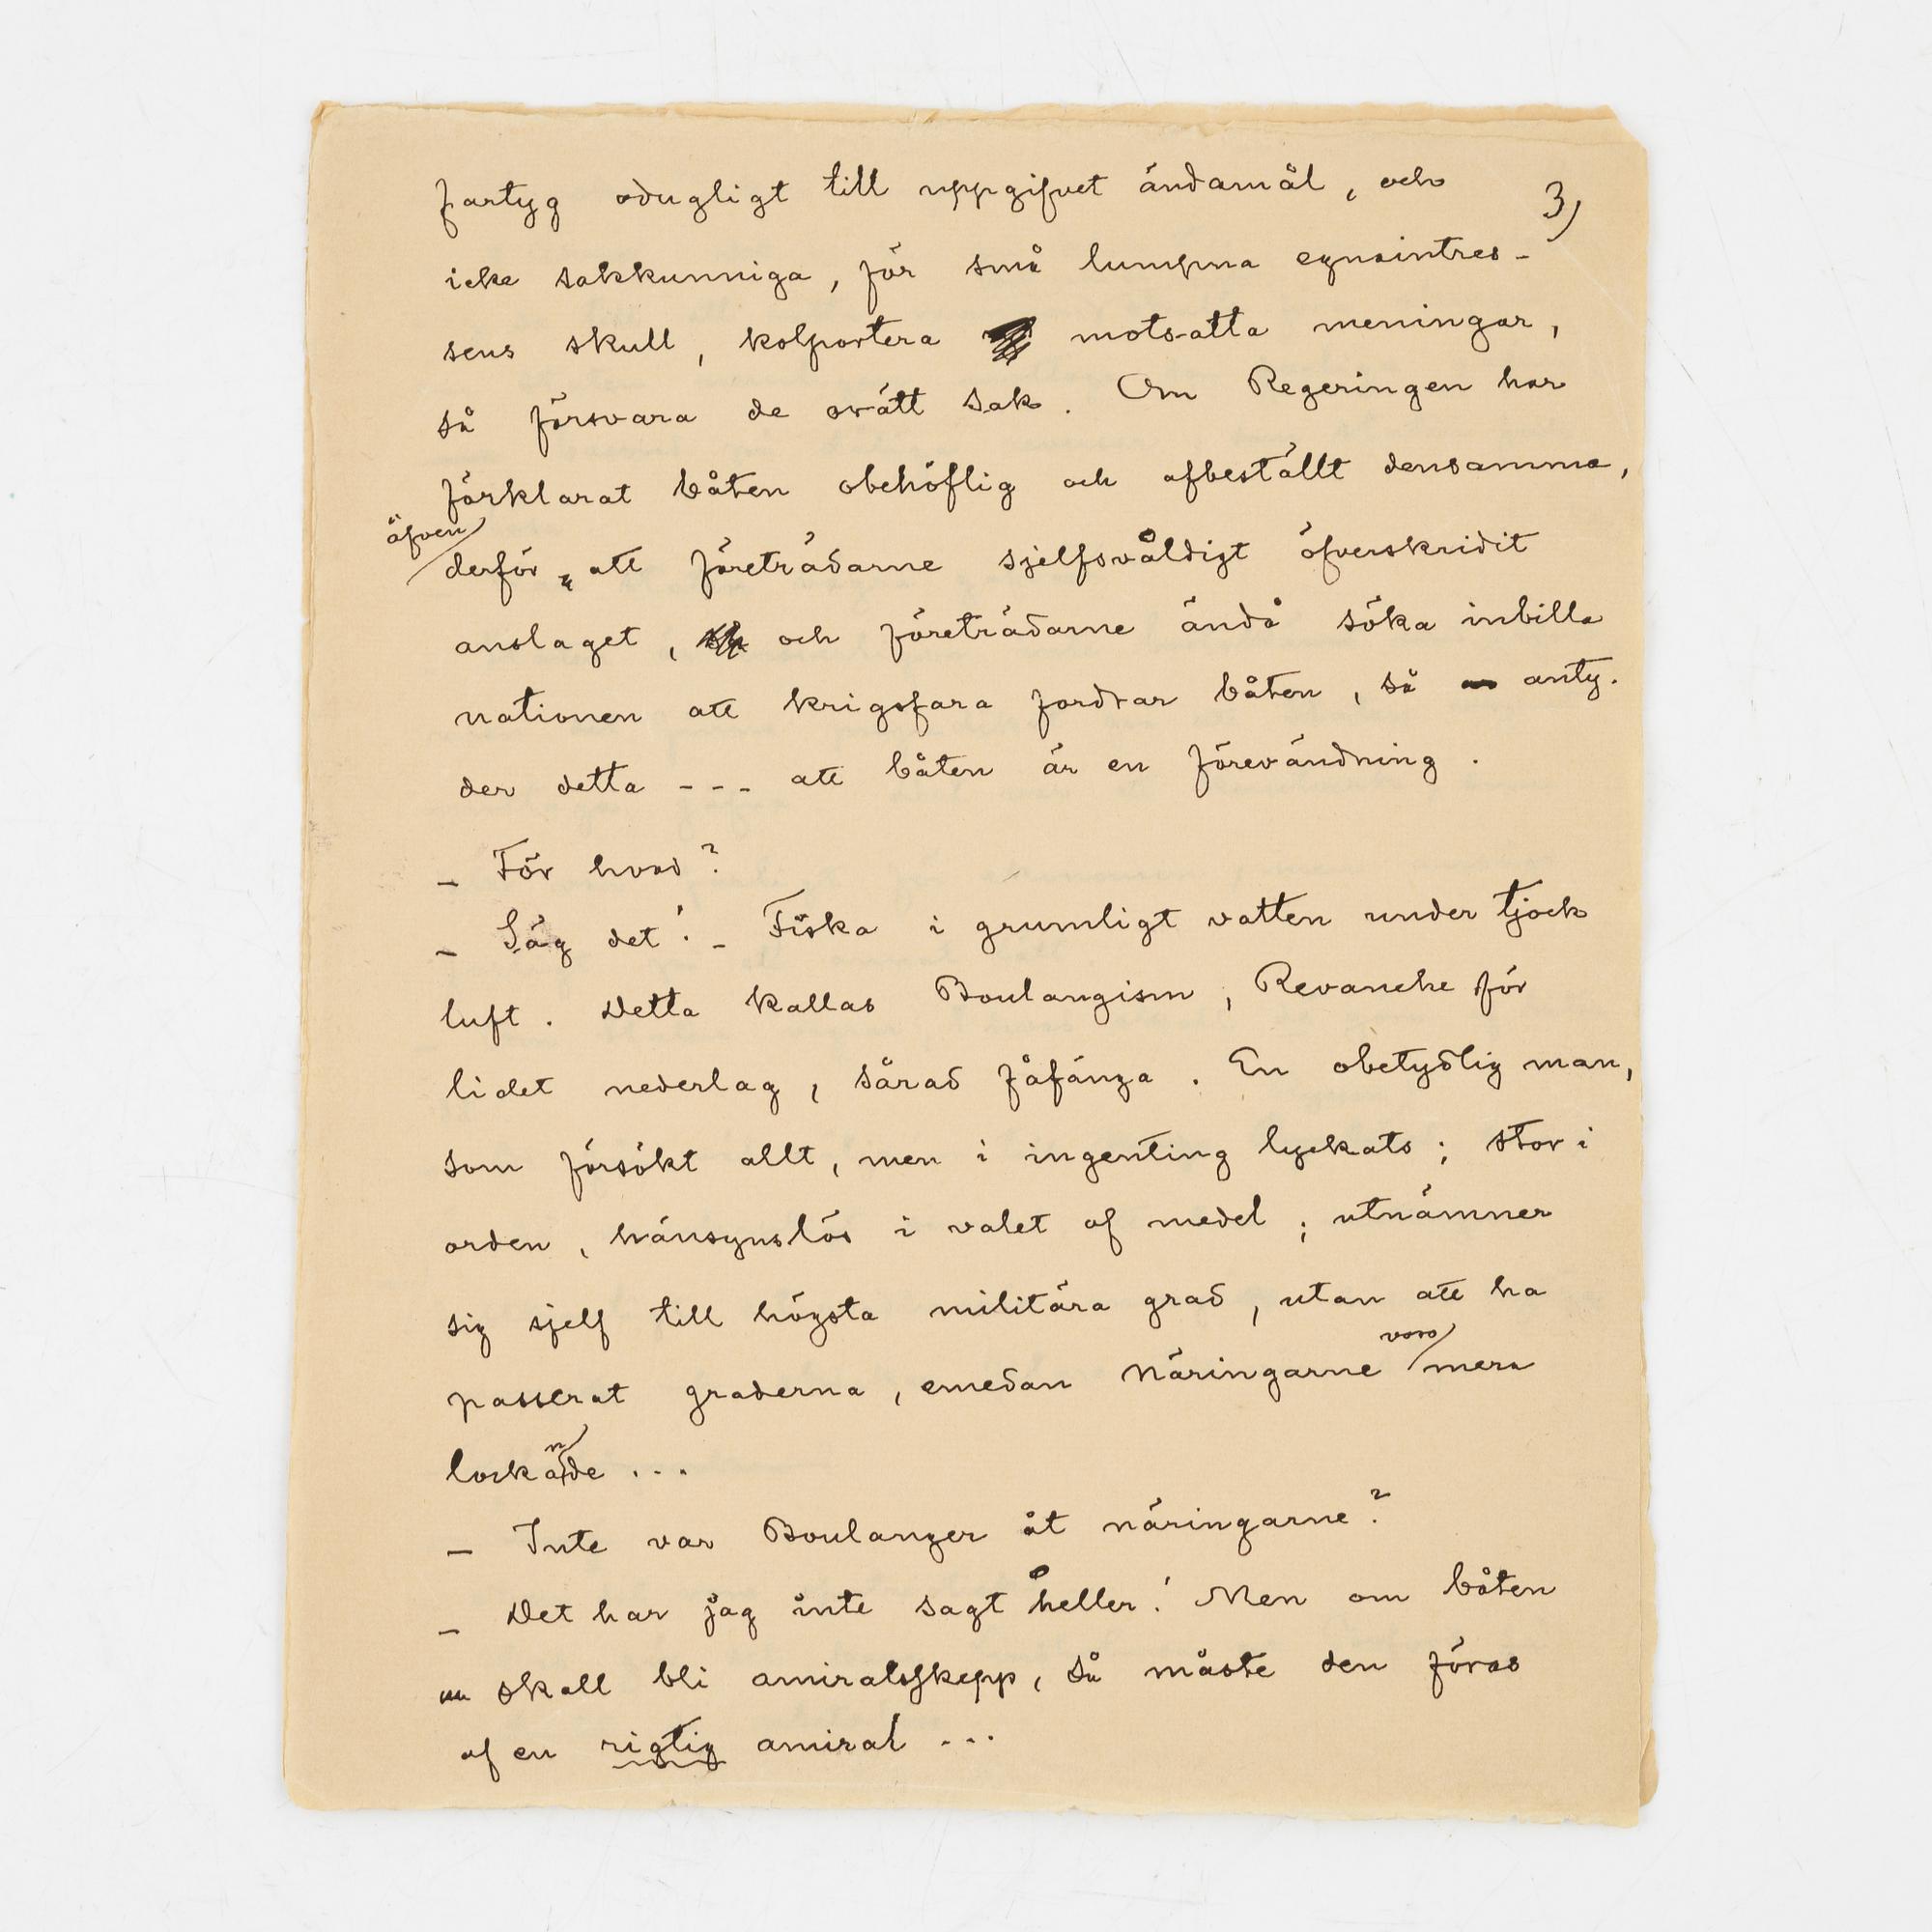 fartyg odugligt till uppgifvet ändamål, och
3)
icke sakkunniga, för små lumpna egnaintres-
sens skull, kolportera motsatta meningar,
så försvara de orätt sak. Om Regeringen har
förklarat båten obehöflig och afbeställt densamma,
äfven
derför, att företrädarne sjelfsvåldigt öfverskridit
anslaget, och företrädarne ändå söka inbilla
nationen att krigsfara fordrar båten, så anty-
der detta --- att båten är en förevändning.
- För hvad?
- Säg det! - Fiska i grumligt vatten under tjock
luft. Detta kallas Boulangism, Revanche för
lidet nederlag, sårad fåfänga. En obetydlig man,
som försökt allt, men i ingenting lyckats; stor i
orden, hänsynslös i valet af medel; utnämner
sig sjelf till högsta militära grad, utan att ha
passerat graderna, emedan näringarne voro mera
lockande ...
- Inte var Boulanger åt näringarne?
- Det har jag inte sagt heller! Men om båten
skall bli amiralsskepp, så måste den föras
af en rigtig amiral ...